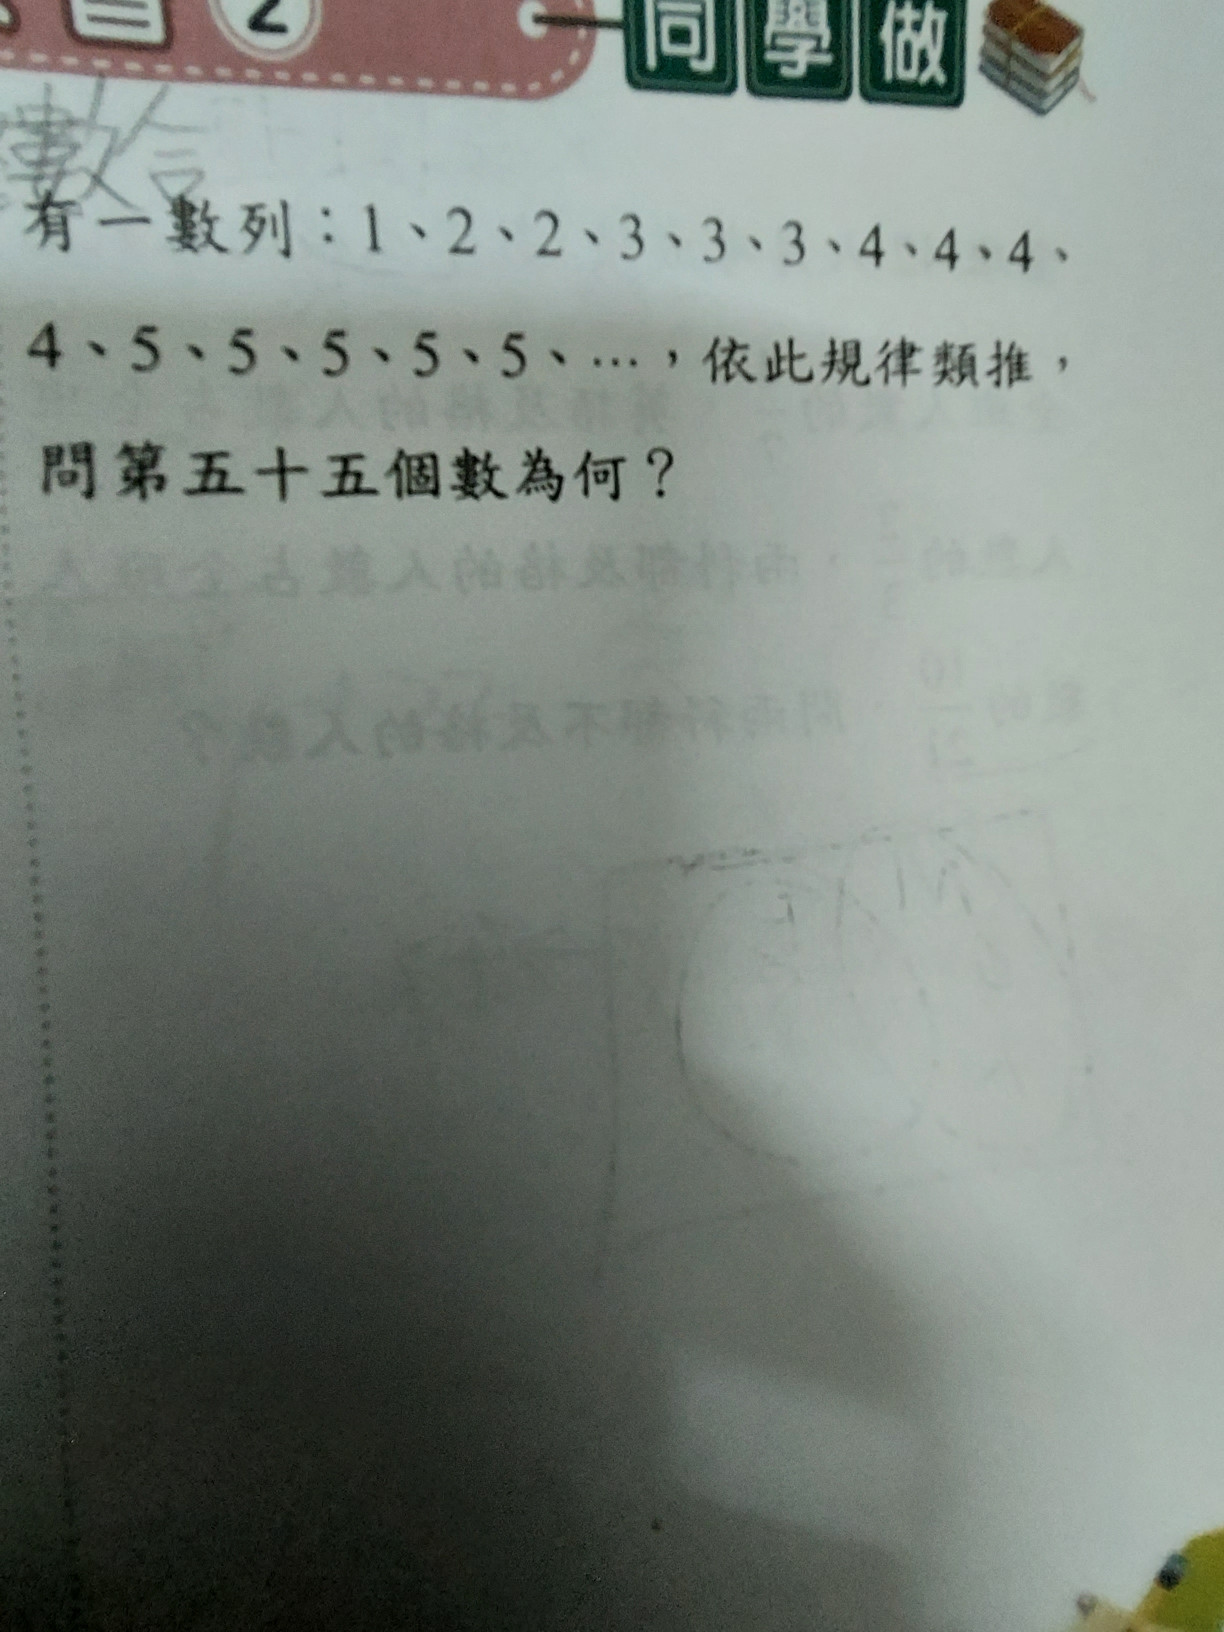 習 2 同學做
數
有一數列：1、2、2、3、3、3、4、4、4、
4、5、5、5、5、5、…，依此規律類推，
問第五十五個數為何？